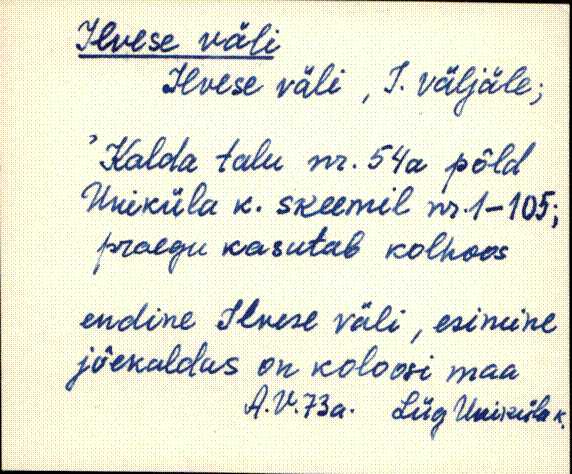 Ilvese väli
Ilvese väli , I. väljäle;
'Kalda talu nr. 54a põld
Uniküla k. skeemil nr. 1-105;
praegu kasutab kolhoos
endine Ilvese väli, esimine
jõekaldas on koloosi maa
A.V. 73a. Lüg Uniküla k.